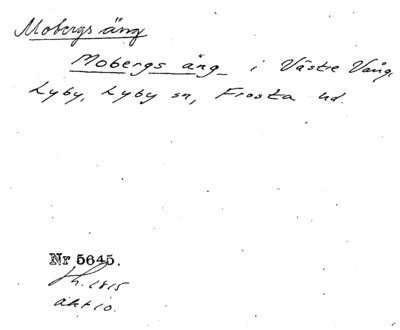 Mobergs äng
Mobergs äng i Västre Vång,
Lyby, Lyby sn, Frosta hd.
Nr 5645.
1815
akt 10.